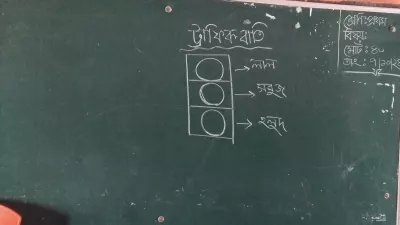 ট্রাফিক বাতি
লাল
সবুজ
হলুদ
শ্রেণি: প্রথম
বিষয়:
মোট: ৪০